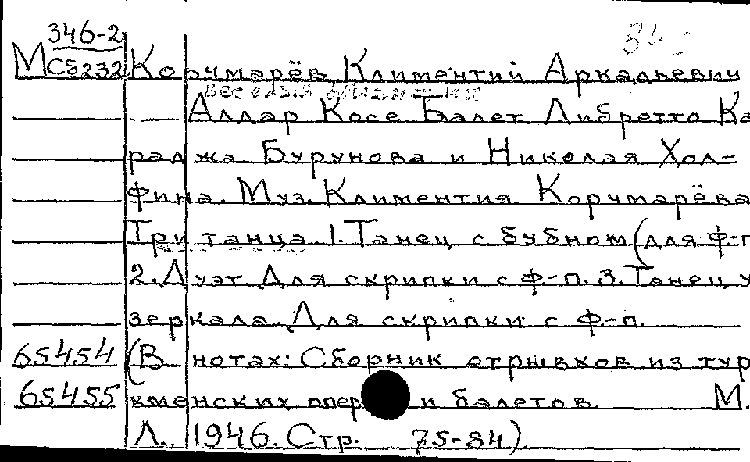 346-2
МС5232 Корчмарёв Климентий Аркадьевич
Веселый обманщик
Алдар Косе Балет Либретто Ка
раджа Бурунова и Николая Хол-
фина. Муз. Климентия Корчмарёва
Три танца. 1. Танец с бубном (для ф-п
2. Дуэт Для скрипки с ф-п. 3. Танец у
зеркала Для скрипки с ф-п.
65454 (В нотах: Сборник отрывков из тур
65455 кменских опер и балетов. М.
Л. 1946. Стр. 75-84)